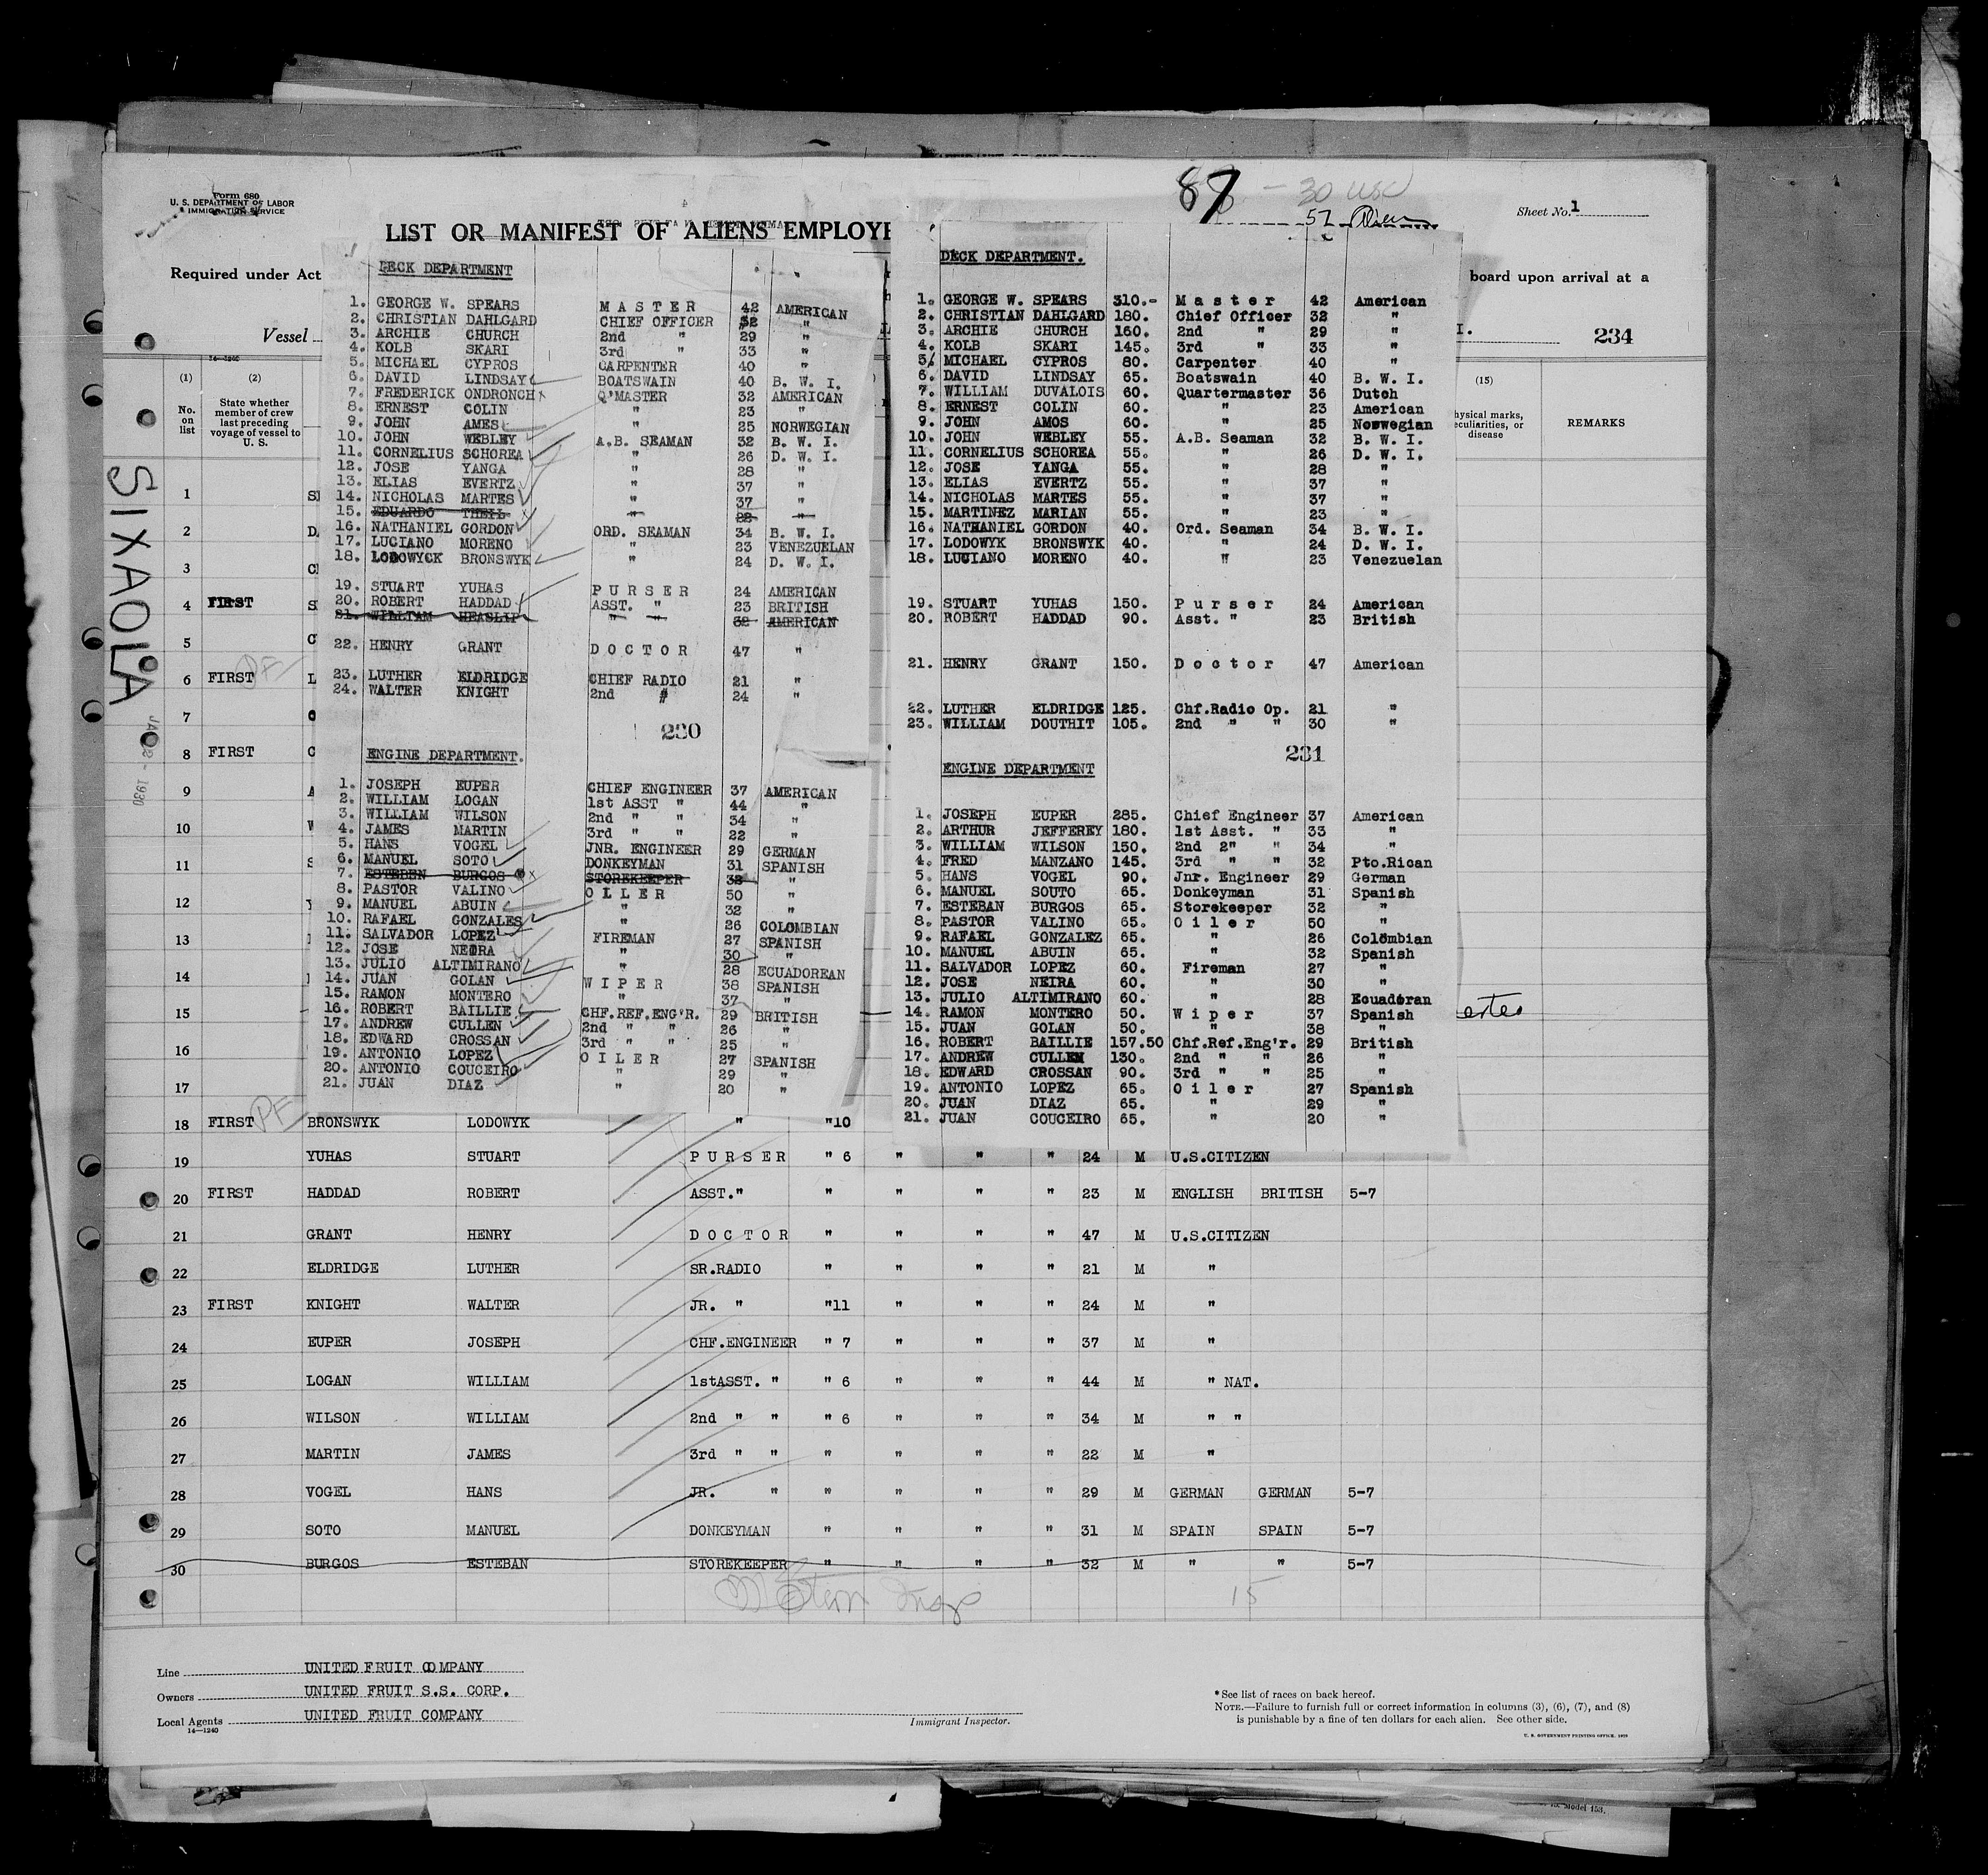 Form 680
U. S. DEPARTMENT OF LABOR
IMMIGRATION SERVICE
87 - 30 USC
57 Alien
Sheet No. 1
LIST OR MANIFEST OF ALIENS EMPLOYE
Required under Act
board upon arrival at a
Vessel
I.
234
14-1240
(1) (2) (15)
No. on list
State whether member of crew last preceding voyage of vessel to U. S.
hysical marks, eculiarities, or disease
REMARKS
SIXAOLA
JAN 22 - 1930
DECK DEPARTMENT
1. GEORGE W. SPEARS M A S T E R 42 AMERICAN
2. CHRISTIAN DAHLGARD CHIEF OFFICER 32 "
3. ARCHIE CHURCH 2nd " 29 "
4. KOLB SKARI 3rd " 33 "
5. MICHAEL CYPROS CARPENTER 40 "
6. DAVID LINDSAY BOATSWAIN 40 B. W. I.
7. FREDERICK ONDRONCH Q'MASTER 32 AMERICAN
8. ERNEST COLIN " 23 "
9. JOHN AMES " 25 NORWEGIAN
10. JOHN WEBLEY A.B. SEAMAN 32 B. W. I.
11. CORNELIUS SCHOREA " 26 D. W. I.
12. JOSE YANGA " 28 "
13. ELIAS EVERTZ " 37 "
14. NICHOLAS MARTES " 37 "
15. EDUARDO THEIL " 22 "
16. NATHANIEL GORDON ORD. SEAMAN 34 B. W. I.
17. LUCIANO MORENO " 23 VENEZUELAN
18. LODOWYCK BRONSWYK " 24 D. W. I.
19. STUART YUHAS P U R S E R 24 AMERICAN
20. ROBERT HADDAD ASST. " 23 BRITISH
21. WILLIAM HEASLIP " " 32 AMERICAN
22. HENRY GRANT D O C T O R 47 "
23. LUTHER ELDRIDGE CHIEF RADIO 21 "
24. WALTER KNIGHT 2nd " 24 "
230
ENGINE DEPARTMENT.
1. JOSEPH EUPER CHIEF ENGINEER 37 AMERICAN
2. WILLIAM LOGAN 1st ASST " 44 "
3. WILLIAM WILSON 2nd " " 34 "
4. JAMES MARTIN 3rd " " 22 "
5. HANS VOGEL JNR. ENGINEER 29 GERMAN
6. MANUEL SOTO DONKEYMAN 31 SPANISH
7. ESTEBEN BURGOS STOREKEEPER 32 "
8. PASTOR VALINO O I L E R 50 "
9. MANUEL ABUIN " 32 "
10. RAFAEL GONZALES " 26 COLOMBIAN
11. SALVADOR LOPEZ FIREMAN 27 SPANISH
12. JOSE NEIRA " 30 "
13. JULIO ALTIMIRANO " 28 ECUADOREAN
14. JUAN GOLAN W I P E R 38 SPANISH
15. RAMON MONTERO " 37 "
16. ROBERT BAILLIE CHF.REF.ENG'R. 29 BRITISH
17. ANDREW CULLEN 2nd " " 26 "
18. EDWARD CROSSAN 3rd " " 25 "
19. ANTONIO LOPEZ O I L E R 27 SPANISH
20. ANTONIO COUCEIRO " 29 "
21. JUAN DIAZ " 20 "
DECK DEPARTMENT.
1. GEORGE W. SPEARS 310.- M a s t e r 42 American
2. CHRISTIAN DAHLGARD 180. Chief Officer 32 "
3. ARCHIE CHURCH 160. 2nd " 29 "
4. KOLB SKARI 145. 3rd " 33 "
5. MICHAEL CYPROS 80. Carpenter 40 "
6. DAVID LINDSAY 65. Boatswain 40 B. W. I.
7. WILLIAM DUVALOIS 60. Quartermaster 36 Dutch
8. ERNEST COLIN 60. " 23 American
9. JOHN AMOS 60. " 25 Norwegian
10. JOHN WEBLEY 55. A.B. Seaman 32 B. W. I.
11. CORNELIUS SCHOREA 55. " 26 D. W. I.
12. JOSE YANGA 55. " 28 "
13. ELIAS EVERTZ 55. " 37 "
14. NICHOLAS MARTES 55. " 37 "
15. MARTINEZ MARIAN 55. " 23 "
16. NATHANIEL GORDON 40. Ord. Seaman 34 B. W. I.
17. LODOWYK BRONSWYK 40. " 24 D. W. I.
18. LUCIANO MORENO 40. " 23 Venezuelan
19. STUART YUHAS 150. P u r s e r 24 American
20. ROBERT HADDAD 90. Asst. " 23 British
21. HENRY GRANT 150. D o c t o r 47 American
22. LUTHER ELDRIDGE 125. Chf.Radio Op. 21 "
23. WILLIAM DOUTHIT 105. 2nd " " 30 "
231
ENGINE DEPARTMENT
1. JOSEPH EUPER 285. Chief Engineer 37 American
2. ARTHUR JEFFEREY 180. 1st Asst. " 33 "
3. WILLIAM WILSON 150. 2nd 2" " 34 "
4. FRED MANZANO 145. 3rd " " 32 Pto.Rican
5. HANS VOGEL 90. Jnr. Engineer 29 German
6. MANUEL SOUTO 65. Donkeyman 31 Spanish
7. ESTEBAN BURGOS 65. Storekeeper 32 "
8. PASTOR VALINO 65. O i l e r 50 "
9. RAFAEL GONZALEZ 65. " 26 Colombian
10. MANUEL ABUIN 65. " 32 Spanish
11. SALVADOR LOPEZ 60. Fireman 27 "
12. JOSE NEIRA 60. " 30 "
13. JULIO ALTIMIRANO 60. " 28 Ecuadoran
14. RAMON MONTERO 50. W i p e r 37 Spanish
15. JUAN GOLAN 50. " 38 "
16. ROBERT BAILLIE 157.50 Chf.Ref.Eng'r. 29 British
17. ANDREW CULLEN 130. 2nd " " 26 "
18. EDWARD CROSSAN 90. 3rd " " 25 "
19. ANTONIO LOPEZ 65. O i l e r 27 Spanish
20. JUAN DIAZ 65. " 29 "
21. JUAN COUCEIRO 65. " 20 "
1 SP
2 DA
3 CH
4 FIRST SK
5 CY
6 FIRST PF L
7 O
8 FIRST C
9 A
10 W
11 S
12 Y
13
14
15
16
17
18 FIRST PF BRONSWYK LODOWYK " "10
19 YUHAS STUART P U R S E R " 6 " " " 24 M U.S.CITIZEN
20 FIRST HADDAD ROBERT ASST." " " " " 23 M ENGLISH BRITISH 5-7
21 GRANT HENRY D O C T O R " " " " 47 M U.S.CITIZEN
22 ELDRIDGE LUTHER SR.RADIO " " " " 21 M "
23 FIRST KNIGHT WALTER JR. " "11 " " " 24 M "
24 EUPER JOSEPH CHF.ENGINEER " 7 " " " 37 M "
25 LOGAN WILLIAM 1stASST. " " 6 " " " 44 M " NAT.
26 WILSON WILLIAM 2nd " " " 6 " " " 34 M " "
27 MARTIN JAMES 3rd " " " " " " 22 M "
28 VOGEL HANS JR. " " " " " 29 M GERMAN GERMAN 5-7
29 SOTO MANUEL DONKEYMAN " " " " 31 M SPAIN SPAIN 5-7
30 BURGOS ESTEBAN STOREKEEPER " " " " 32 M " " 5-7
15
Line UNITED FRUIT COMPANY
Owners UNITED FRUIT S.S. CORP.
Local Agents UNITED FRUIT COMPANY
14-1240
Immigrant Inspector.
* See list of races on back hereof.
NOTE.—Failure to furnish full or correct information in columns (3), (6), (7), and (8)
is punishable by a fine of ten dollars for each alien. See other side.
U. S. GOVERNMENT PRINTING OFFICE. 1929
Model 153.